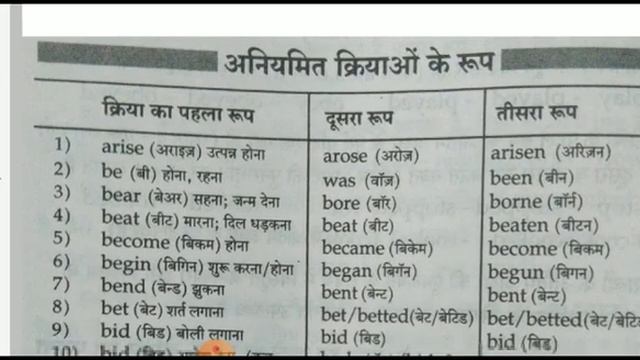 अनियमित क्रियाओं के रूप
क्रिया का पहला रूप दूसरा रूप तीसरा रूप
1) arise (अराइज़) उत्पन्न होना arose (अरोज़) arisen (अरिज़न)
2) be (बी) होना, रहना was (वॉज़) been (बीन)
3) bear (बेअर) सहना; जन्म देना bore (बॉर) borne (बॉर्न)
4) beat (बीट) मारना; दिल धड़कना beat (बीट) beaten (बीटन)
5) become (बिकम) होना became (बिकेम) become (बिकम)
6) begin (बिगिन) शुरू करना/होना began (बिगॅन) begun (बिगन)
7) bend (बेन्ड) झुकना bent (बेन्ट) bent (बेन्ट)
8) bet (बेट) शर्त लगाना bet/betted(बेट/बेटिड) bet/betted(बेट/बेटि
9) bid (बिड) बोली लगाना bid (बिड) bid (बिड)
10) bid (बिड)